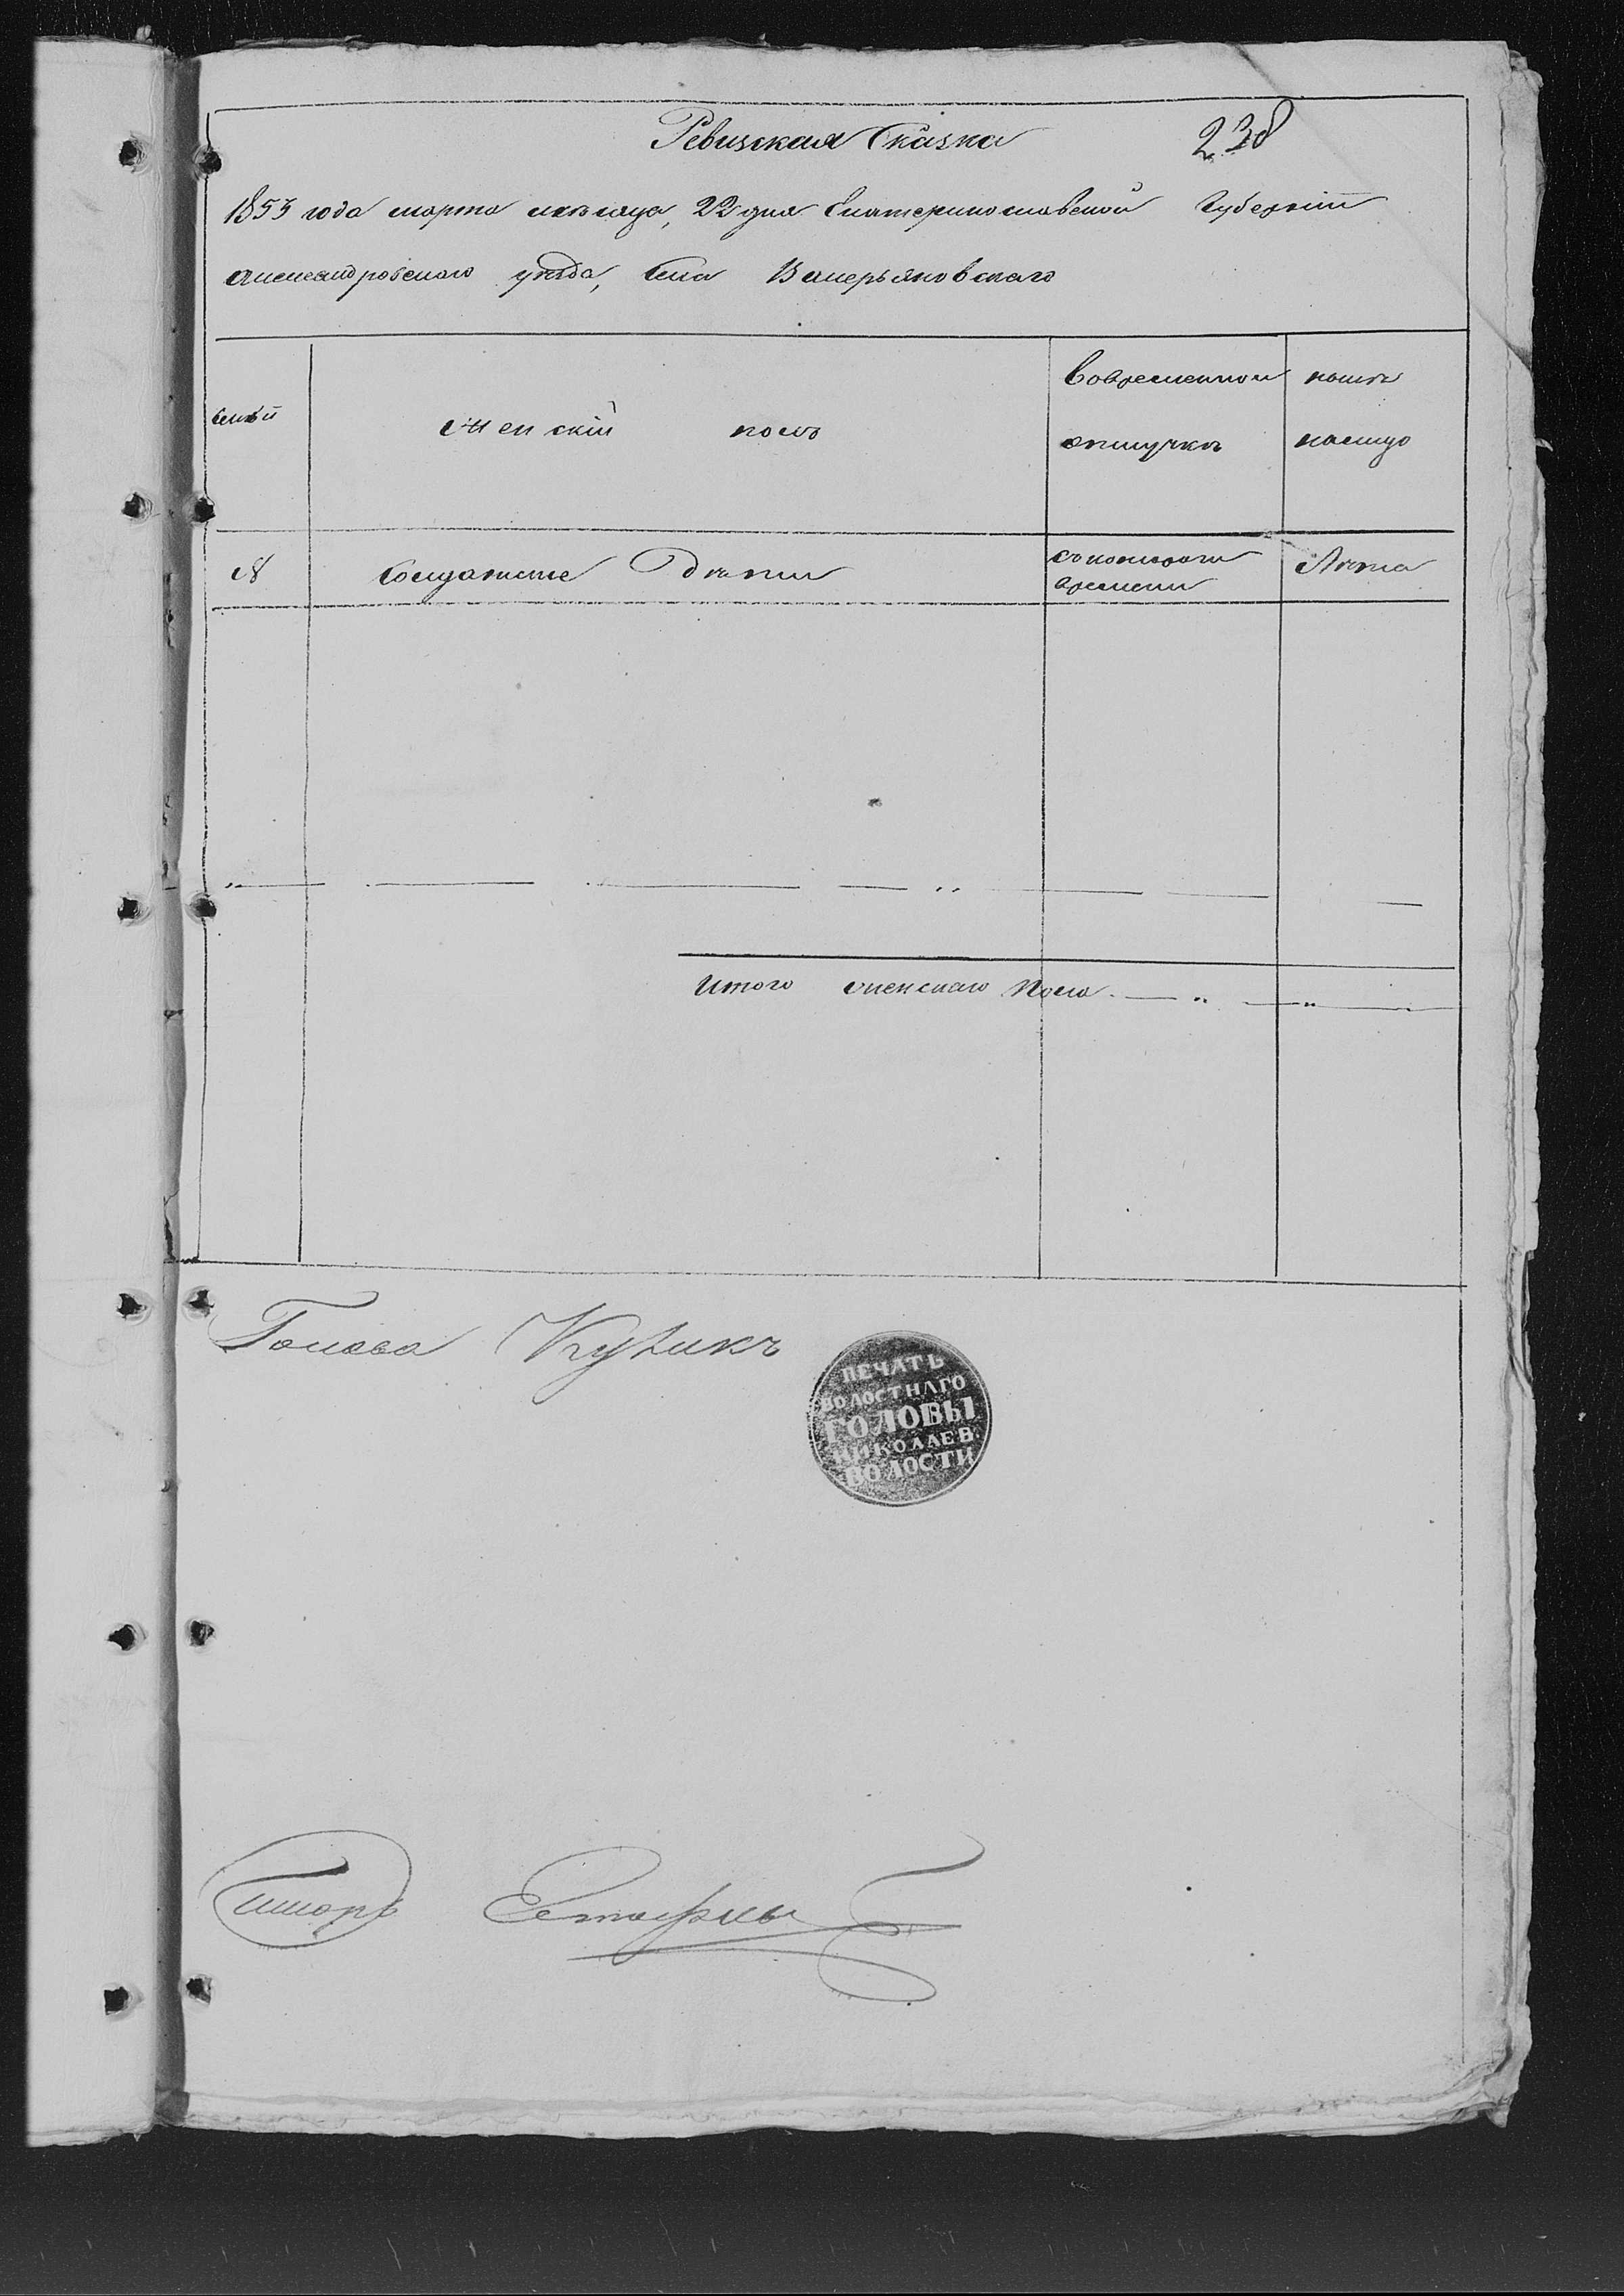 Ревизская Сказка 238
1853 года марта месяца, 22 дня Екатеринославской Губерніи
Александровскаго уезда, Села Валерьяновскаго
семей
Женскій полъ
Вовременной отлучке
ныне налицо
№
Солдатские Дети
съ котораго времени
Лета
Итого женскаго пола
Голова Кузикъ
ПЕЧАТЬ
ВОЛОСТНАГО
ГОЛОВЫ
НИКОЛАЕВ.
ВОЛОСТИ
Писарь